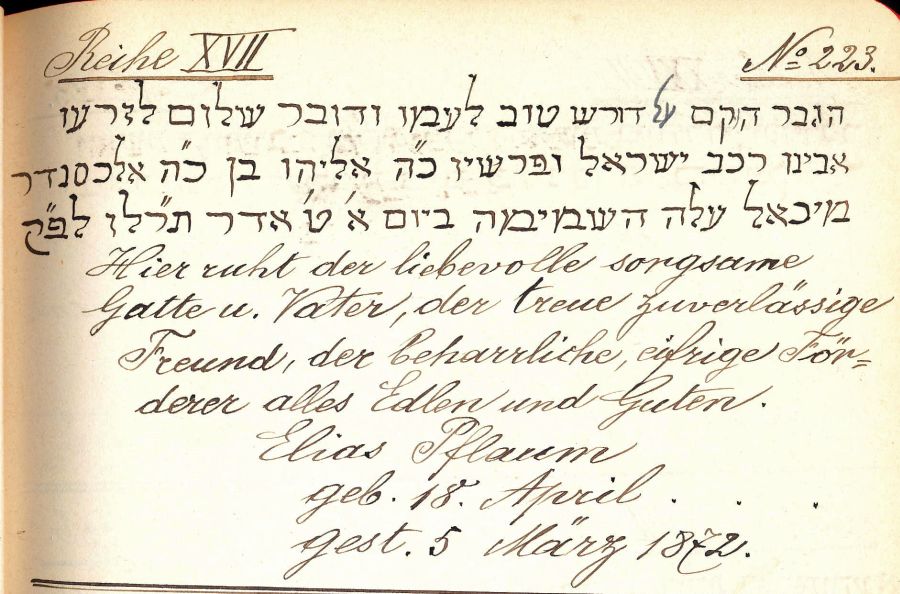 Reihe XVII
No 223.
הגבר הקם על דורש טוב לעמו ודובר שלום לזרעו
אבינו רכב ישראל ופרשיו כ"ה אליהו בן כ"ה אלכסנדר
מיכאל עלה השמימה ביום א' ט' אדר תרל"ו לפ"ק
Hier ruht der liebevolle sorgsame
Gatte u. Vater, der treue zuverlässige
Freund, der beharrliche, eifrige För=
derer alles Edlen und Guten.
Elias Pflaum
geb. 18. April . . .
gest. 5 März 1872.